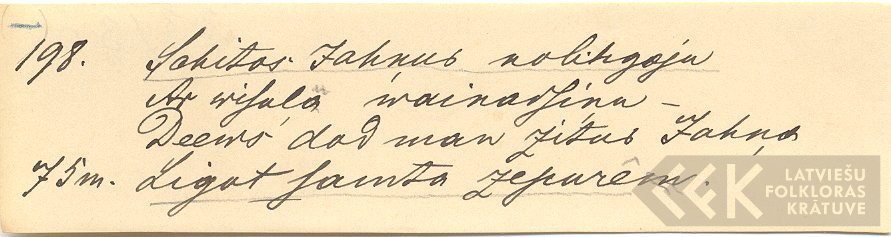 198. Schitos Jahnus nolihgoju
Ar wisuļa wainadsiņu –
Deews, dod man zitus Jahņa
75m. Ligot samta zepurêm.
LATVIEŠU
FOLKLORAS
KRĀTUVE